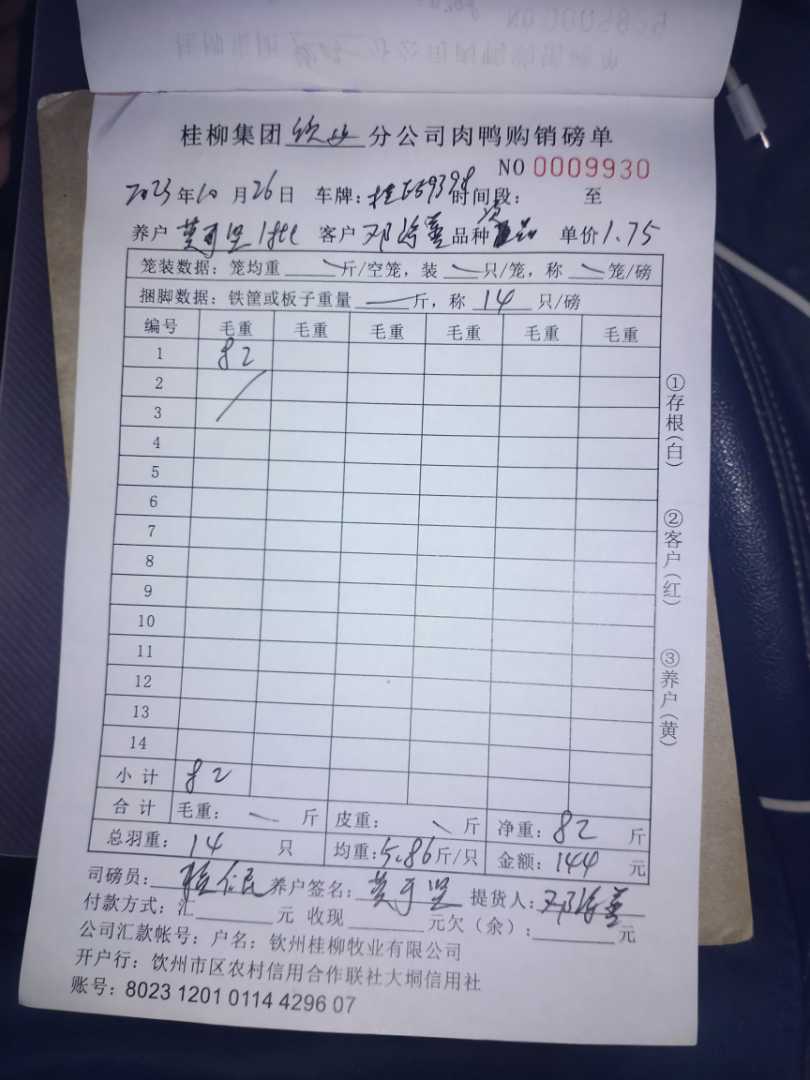 桂柳集团 钦州 分公司肉鸭购销磅单
NO 0009930
2023年10月26日 车牌: 时间段: 至
养户 莫可坚 客户 邓 品种 单价1.75
笼装数据: 笼均重 斤/空笼, 装 只/笼, 称 笼/磅
捆脚数据: 铁筐或板子重量 斤, 称 14 只/磅
编号 毛重 毛重 毛重 毛重 毛重 毛重
1 82
2
3
4
5
6
7
8
9
10
11
12
13
14
小计 82
合计 毛重: 斤 皮重: 斤 净重: 82 斤
总羽重: 14 只 均重: 5.86斤/只 金额: 144 元
司磅员: 养户签名: 莫可坚 提货人: 邓
付款方式: 汇 元 收现 元欠(余): 元
公司汇款帐号: 户名: 钦州桂柳牧业有限公司
开户行: 饮州市区农村信用合作联社大垌信用社
账号: 8023 1201 0114 4296 07
①存根(白)
②客户(红)
③养户(黄)